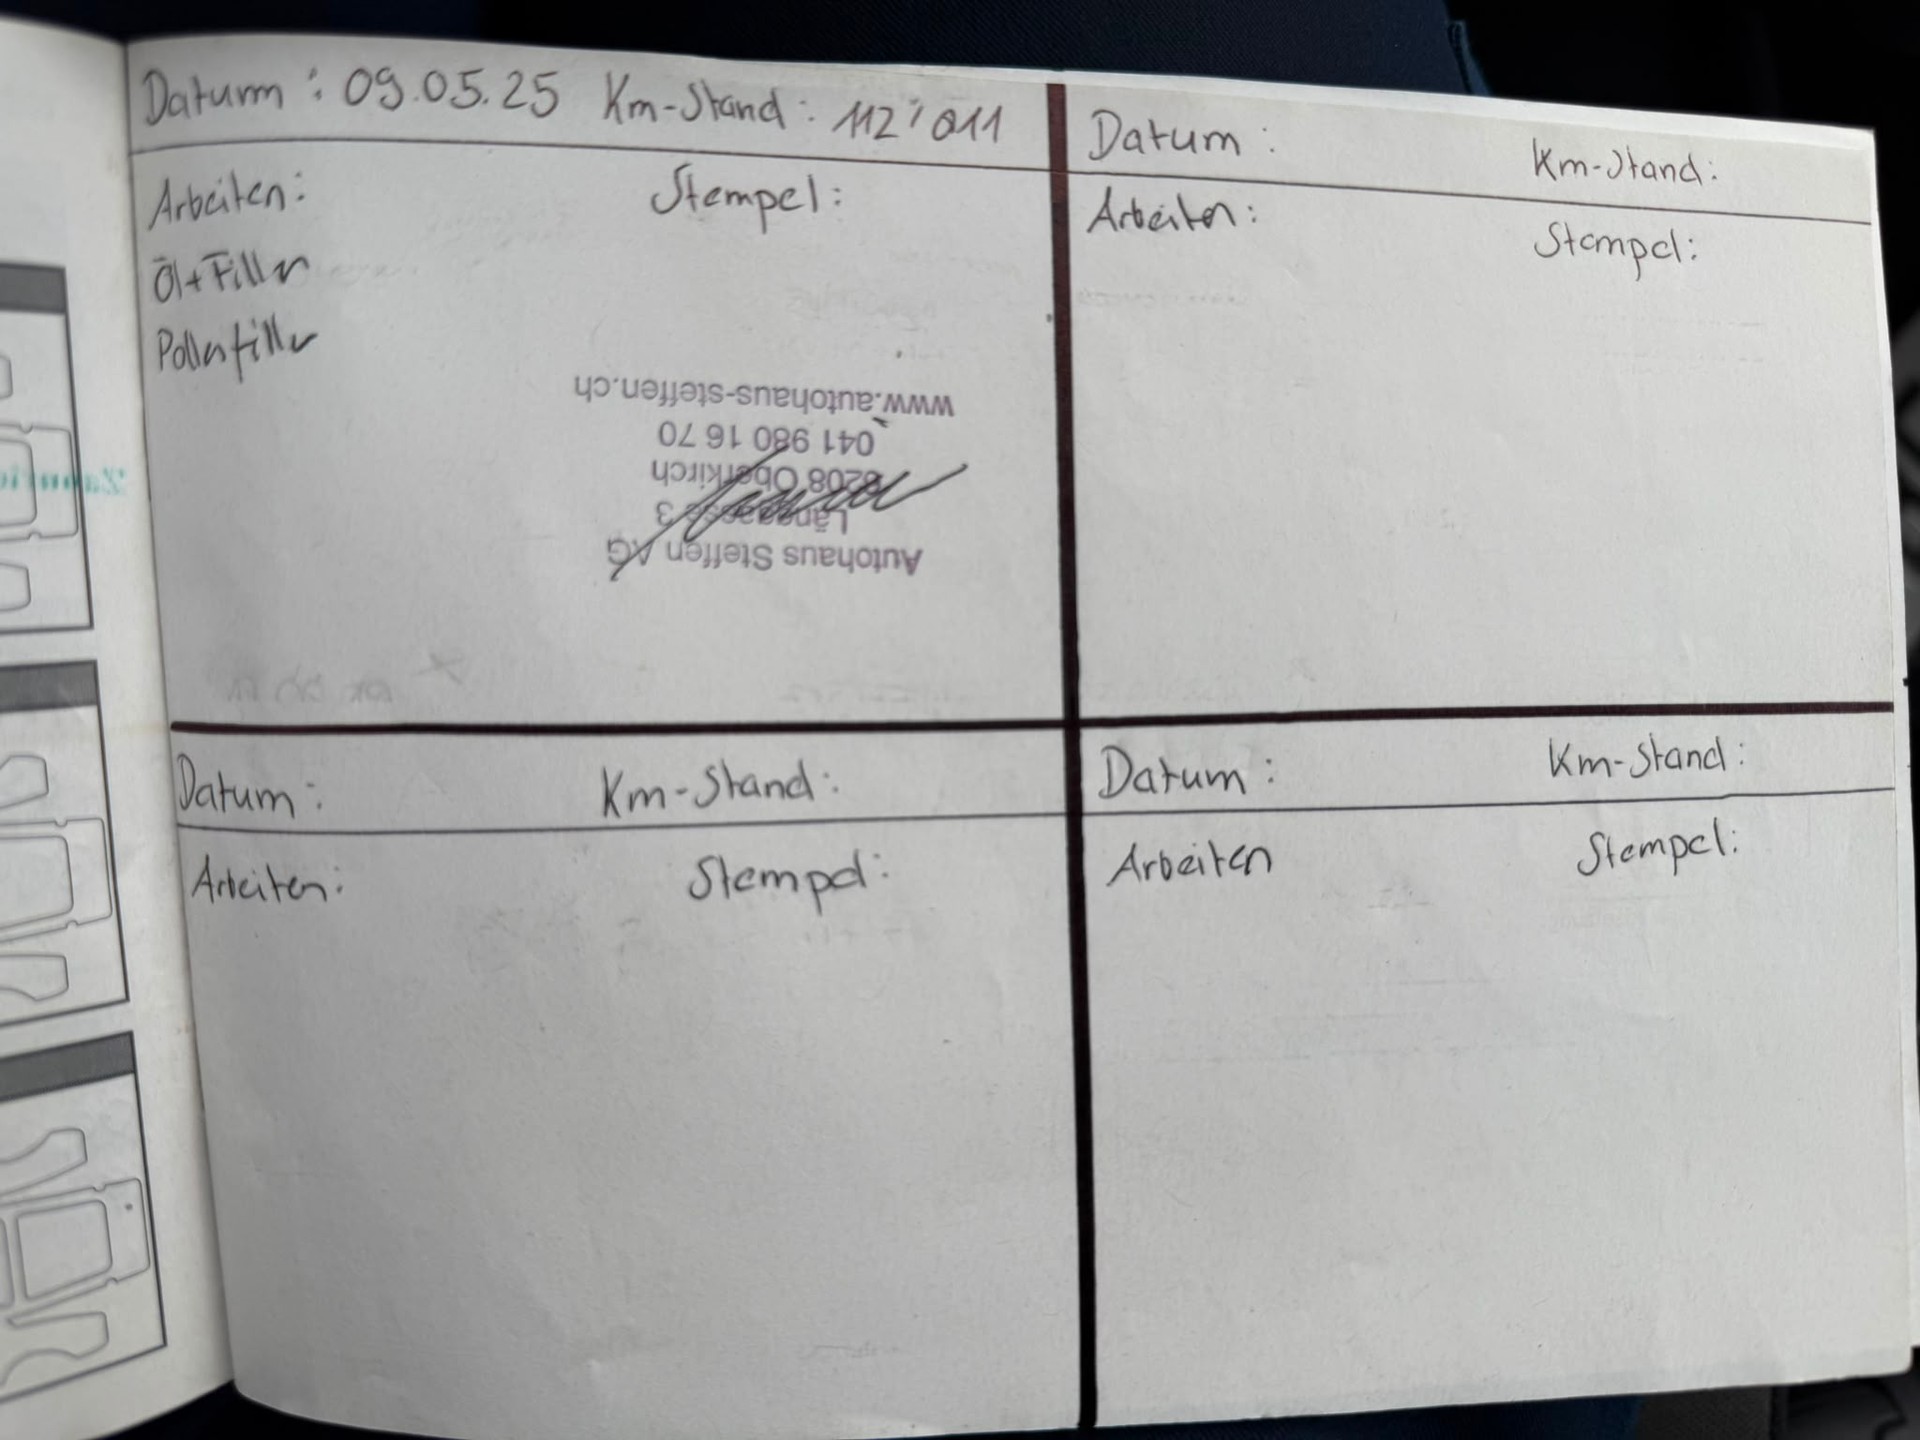 Datum : 09.05.25 Km-Stand : 112'011
Arbeiten: Stempel:
Öl+Filter
Pollenfilter
Autohaus Steffen AG
Länggasse 3
6208 Oberkirch
041 980 16 70
www.autohaus-steffen.ch
Datum : Km-Stand:
Arbeiten: Stempel:
Datum : Km-Stand:
Arbeiten: Stempel:
Datum : Km-Stand:
Arbeiten Stempel: